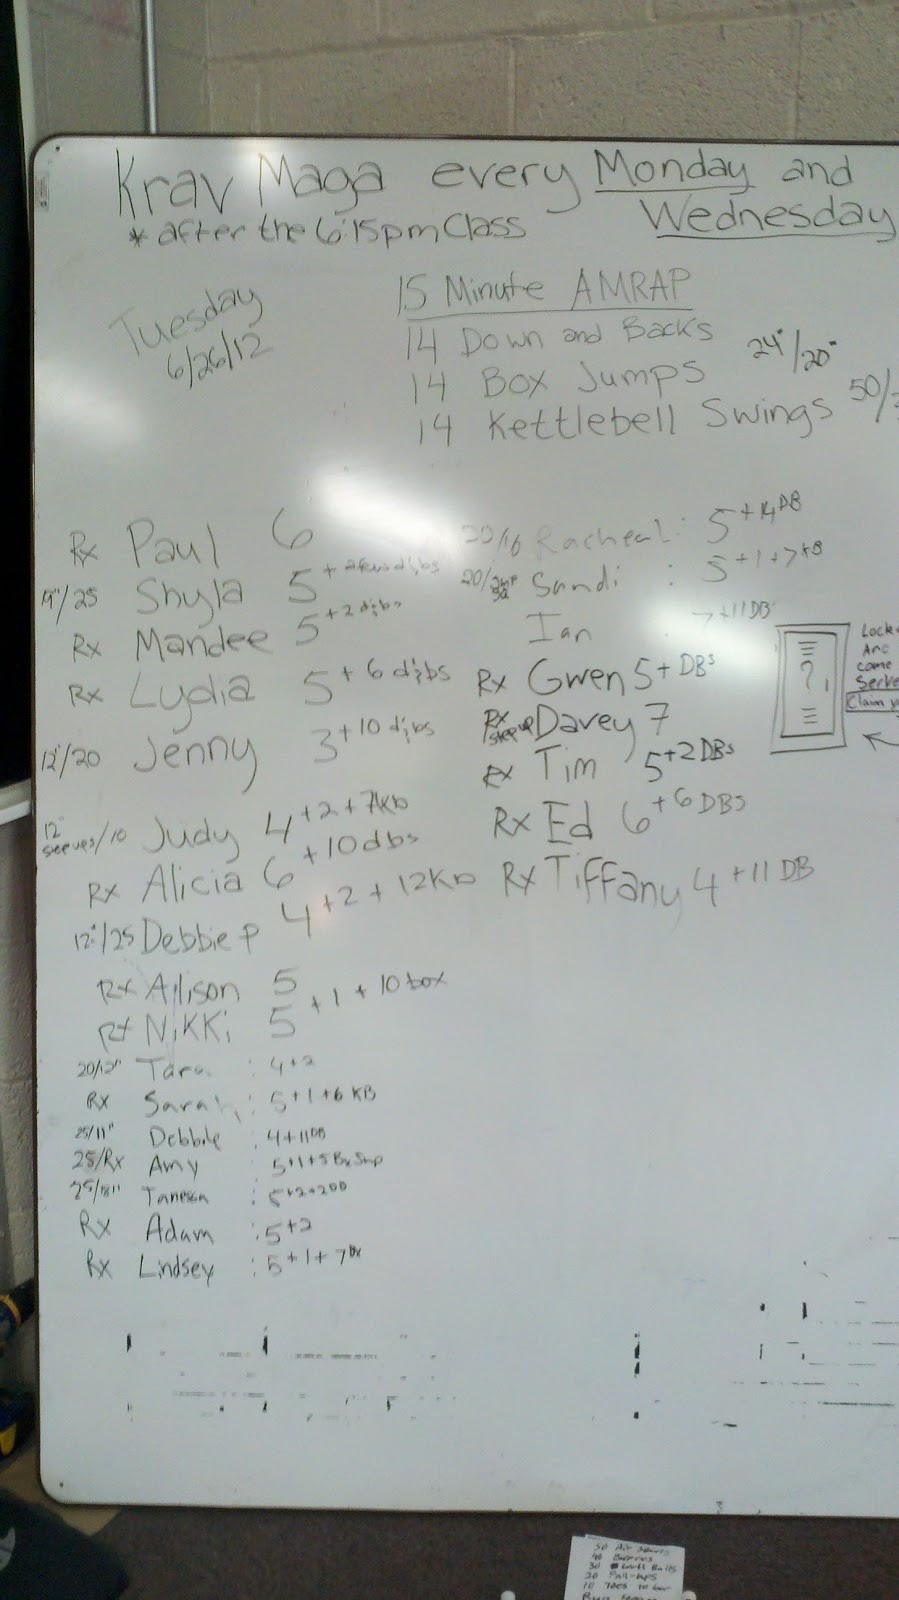 Krav Maga every Monday and
Wednesday
* after the 6:15pm Class
Tuesday
6/26/12
15 Minute AMRAP
14 Down and Backs
14 Box Jumps 24"/20"
14 Kettlebell Swings 50/
Rx Paul 6
/25 Shyla 5 +
Rx Mandee 5 + 2 d;bs
Rx Lydia 5 + 6 d;bs
12"/20 Jenny 3 + 10 d;bs
12" /10 Judy 4 + 2 + 7Kb
Rx Alicia 6 + 10 dbs
12"/25 Debbie P 4 + 2 + 12Kb
Rx Allison 5
Rx Nikki 5 + 1 + 10 box
20/12" Tara : 4 + 2
Rx Sarah : 5 + 1 + 6 KB
25/11" Debbie : 4 + 11 DB
25/Rx Amy : 5 + 1 + 5
25/18" : 5 + 2 + 2
Rx Adam : 5 + 2
Rx Lindsey : 5 + 1 + 7
20/16 Racheal : 5 + 14 DB
20/ Sandi : 5 + 1 + 7 KB
Ian : 7 + 11 DB
Rx Gwen 5 + DBs
Rx Davey 7
Rx Tim 5 + 2 DBs
Rx Ed 6 + 6 DBs
Rx Tiffany 4 + 11 DB
?
Lock
Are
come
Serve
Claim y
50 Air Squats
40 Burpees
30 Wall Balls
20 Pull-ups
10 Toes to bar
Run